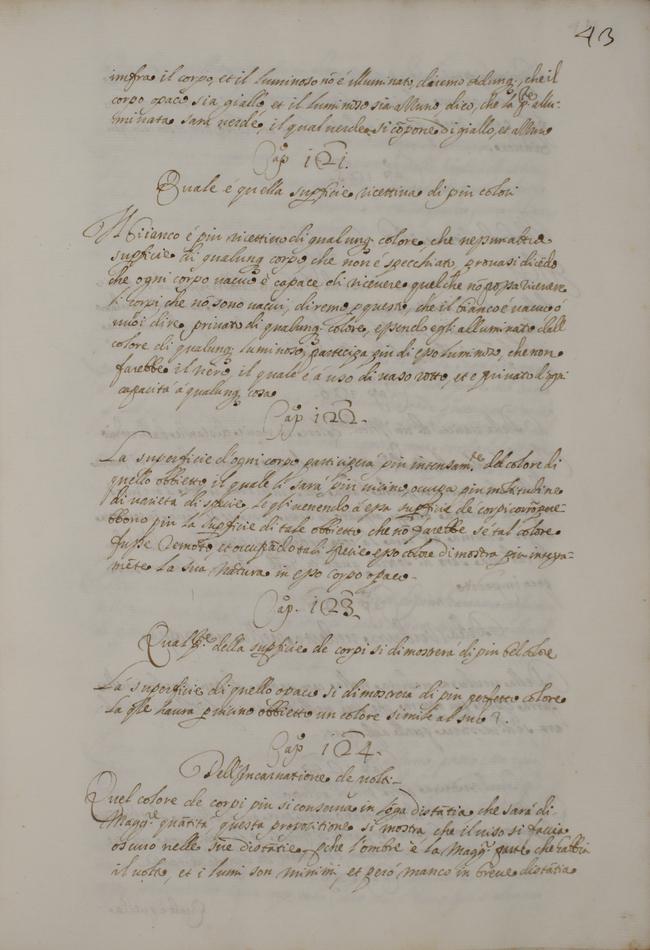 43
infra il corpo, et il luminoso nō é illuminato, diremo adunq;, che il
corpo opaco sia giallo et il luminoso sia azzurro, dico, che la p.te allu-
minata sara verde, il qual verde si cōpone di giallo, et azzurro
Cap.o 121.
Quale é quella supficie ricettiva di piu colori
Il Bianco é piu ricettivo di qualunq; colore, che nesun altra
supficie di qualunq; corpo, che non é specchiato, provasi dicēdo
che ogni corpo vacuo é capace di ricevere quel che nō possa ricevere
li corpi che nō sono vacui, diremo p questo, che il bianco é vacuo ó
vuoi dire privato di qualunq; colore, essendo egli alluminato dall
colore di qualunq; luminoso, participa piu di esso luminoso, che non
farebbe il nero, il quale é á uso di vaso rotto, et é privato d'ogni
capacitá á qualunq; cosa
Cap.o 122.
La superficie d'ogni corpo participerá piu intensam.te del colore di
quello obbietto il quale li sará piu vicino, occupa piu moltitudine
di varietá di spetie, le qli venendo á essa supficie de corpi
bbono piu la supficie di tale obbietto che nō farebbe se tal colore
fusse remoto, et occupādo tali spetie esso colore dimostra piu intera-
mēte la sua natura in esso corpo opaco.
Cap.o 123
Qual p.te della supficie de corpi si dimostrerá di piu bel colore
La superficie di quello opaco si dimostrerá di piu perfetto colore
la qle havrá p vicino obbietto un colore simile al suo.
Cap.o 124.
Dell'Incarnatione de volti.
Quel colore de corpi piu si conserva in lōga distātia che sará di
Magg.re quātitá, questa propositione si mostra che il viso si faccia
oscuro nelle sue distātie, pche l'ombre é la Magg.r parte che habbia
il volto, et i lumi son minimi, et peró manco in breve distātia